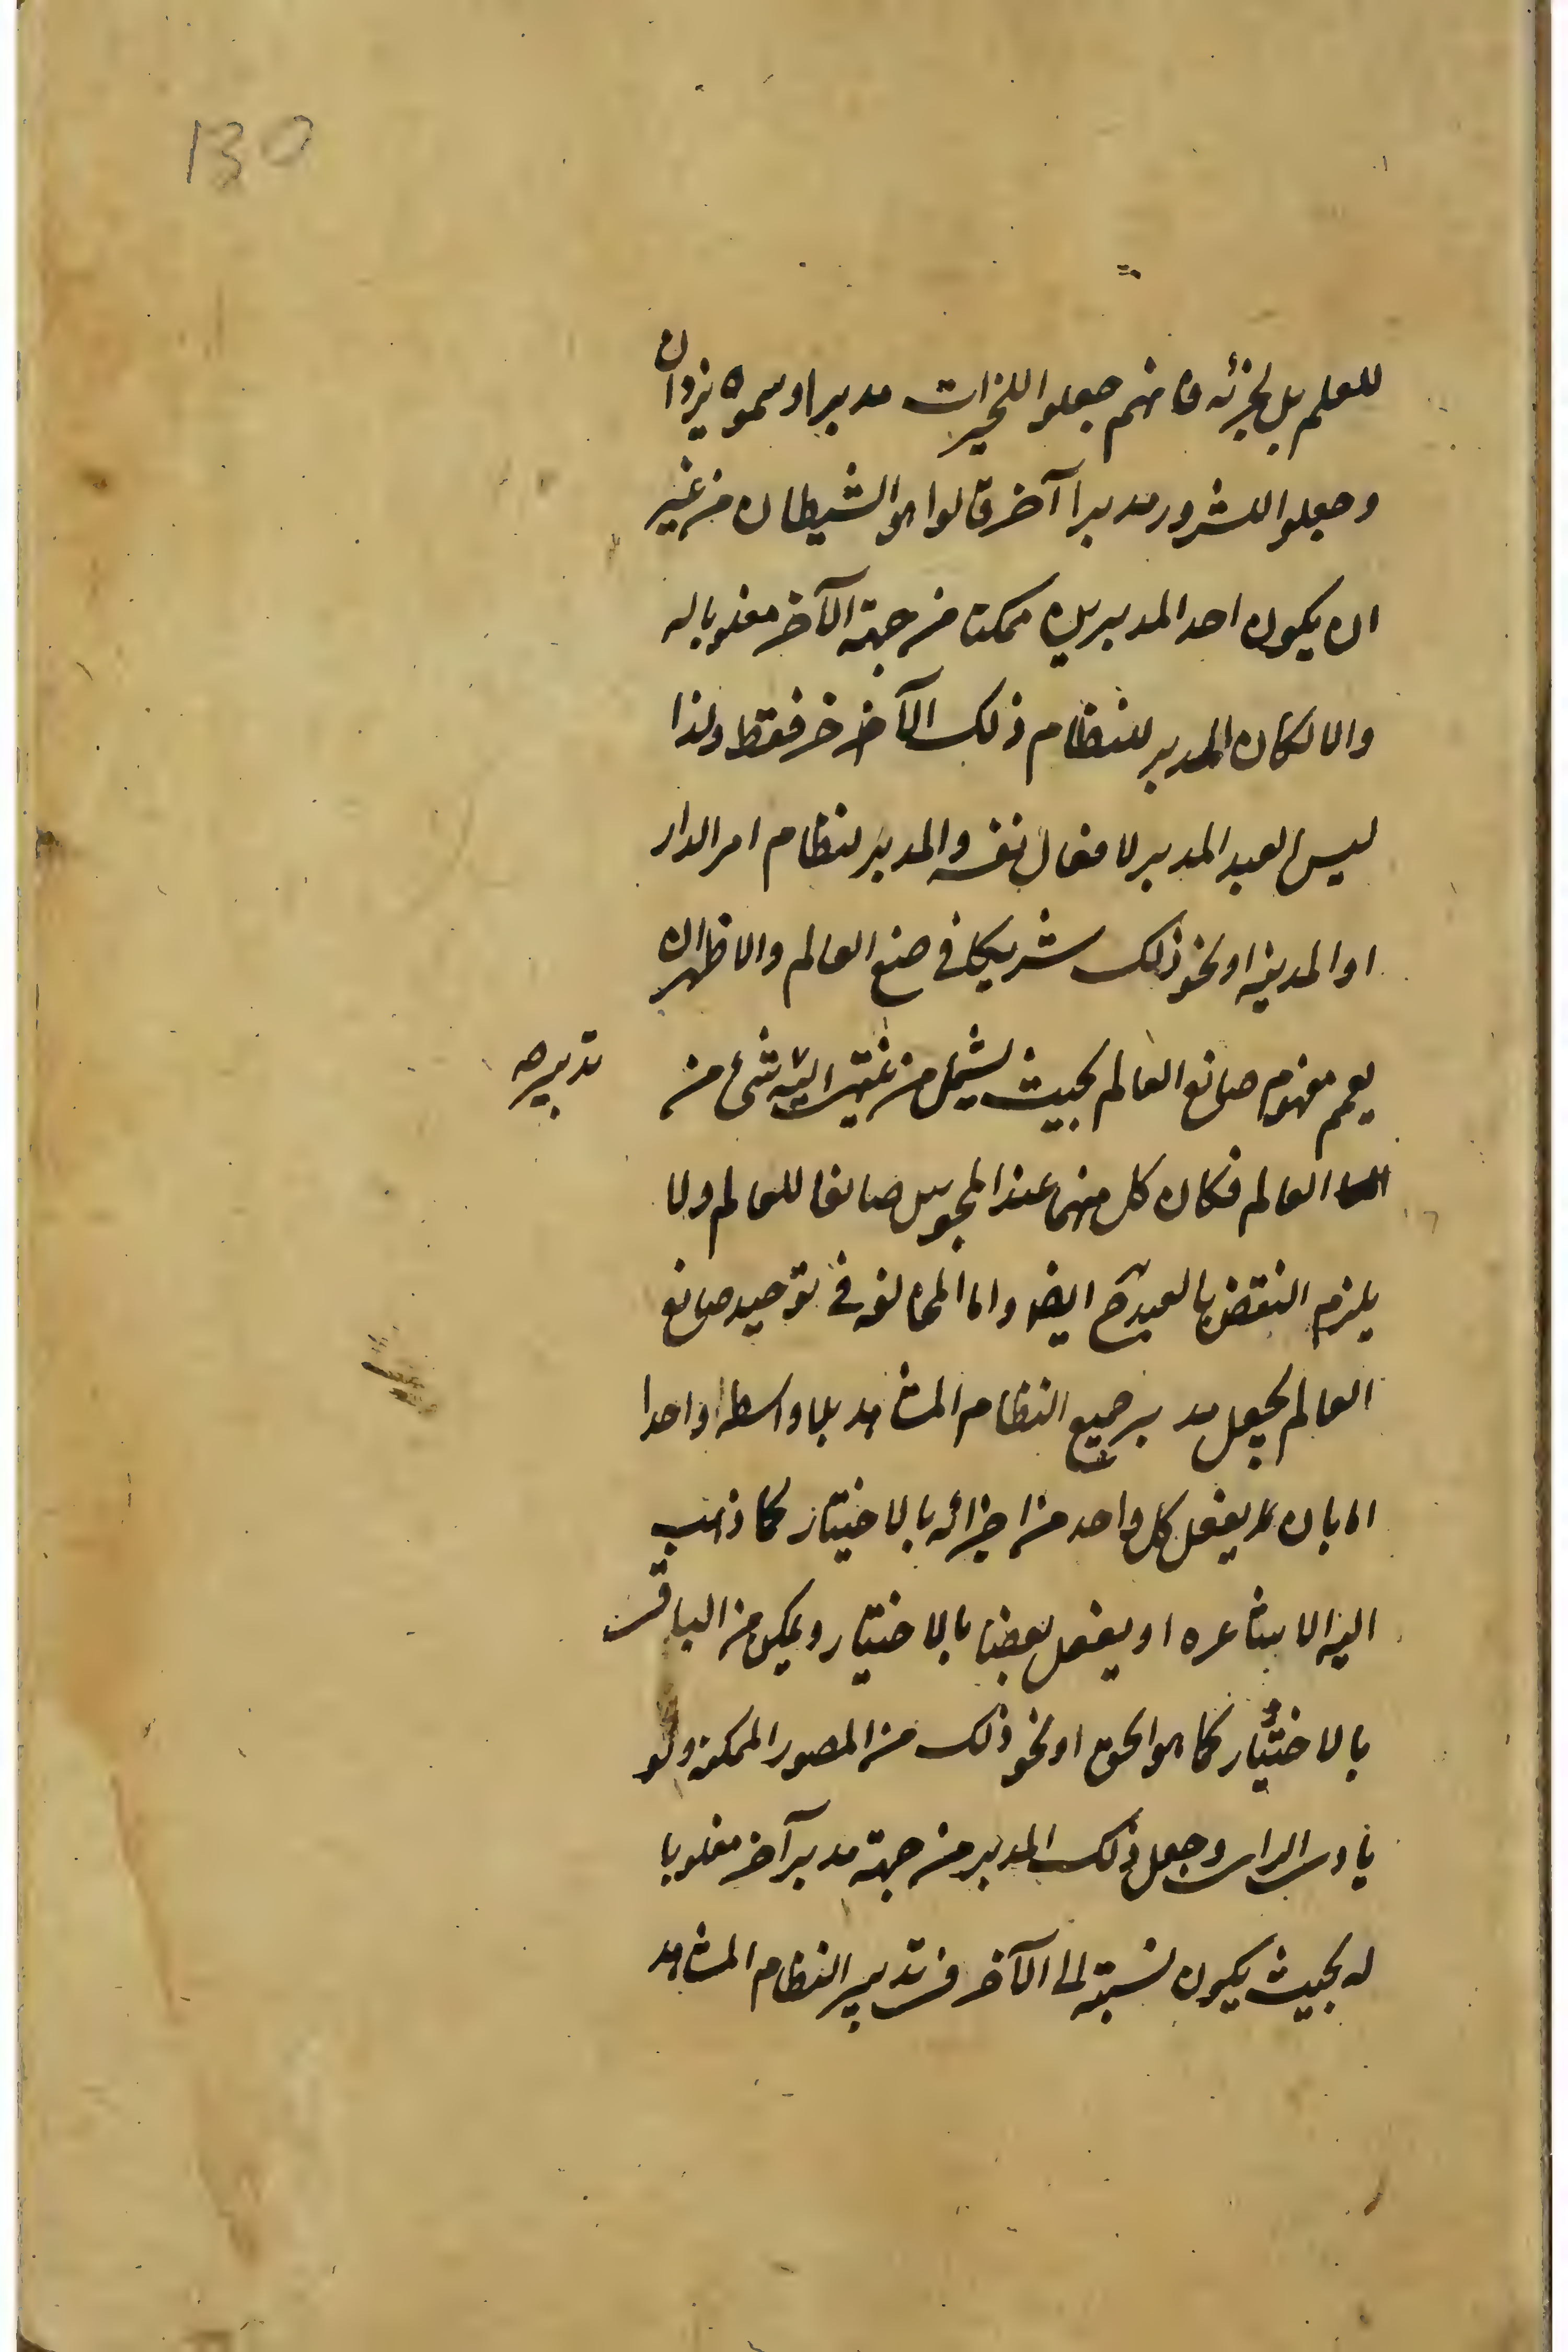 130
للعلم بل لجزئه فانهم جعلوا للخيرات مدبرا وسموه يزدان
وجعلوا للشرور مدبرا آخر قالوا هو الشيطان من غير
ان يكون احد المدبرين ممكنا من جهة الآخر مغلوبا له
والا لكان المدبر للنظام ذلك الآخر فقط ولذا
ليس العبد المدبر لافعال نفسه والمدبر لنظام امر الدار
او المدينه او نحو ذلك شريكا في صنع العالم والا ظهر ان
يعم مفهوم صانع العالم بحيث يشمل من غير اليه شئ من
تدبير صح
العالم فكان كل منهما عند المجوس صانعا للعالم ولا
يلزم النقض بالعبد ح ايضا واما المخالفه في توحيد صانع
العالم بجعل مدبر جميع النظام المشاهد بلا واسطه واحدا
اما بان يفعل كل واحد من اجزائه بالاختيار كما ذهب
اليه الاشاعره او يفعل بعضها بالاختيار ويمكن من الباقى
بالاختيار كما هو الحق او نحو ذلك من الصور الممكنه ولو
بادى الراى وجعل ذلك المدبر من جهة مدبر آخر مغلوبا
له بحيث يكون نسبته الى الآخر فى تدبير النظام المشاهد